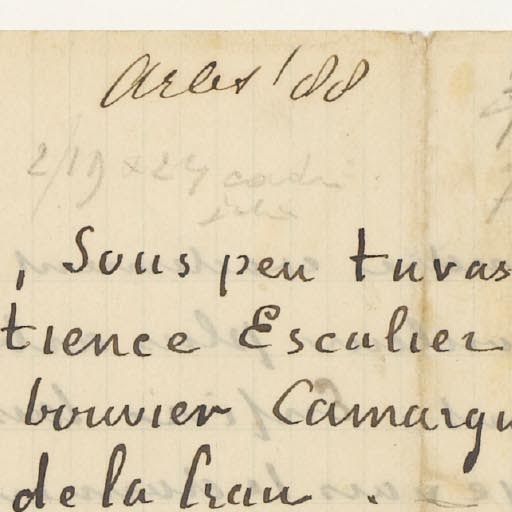 Arles '88
2/19 x 24
, Sous peu tu vas
tience Escalier
bouvier Camargu
de la Crau .